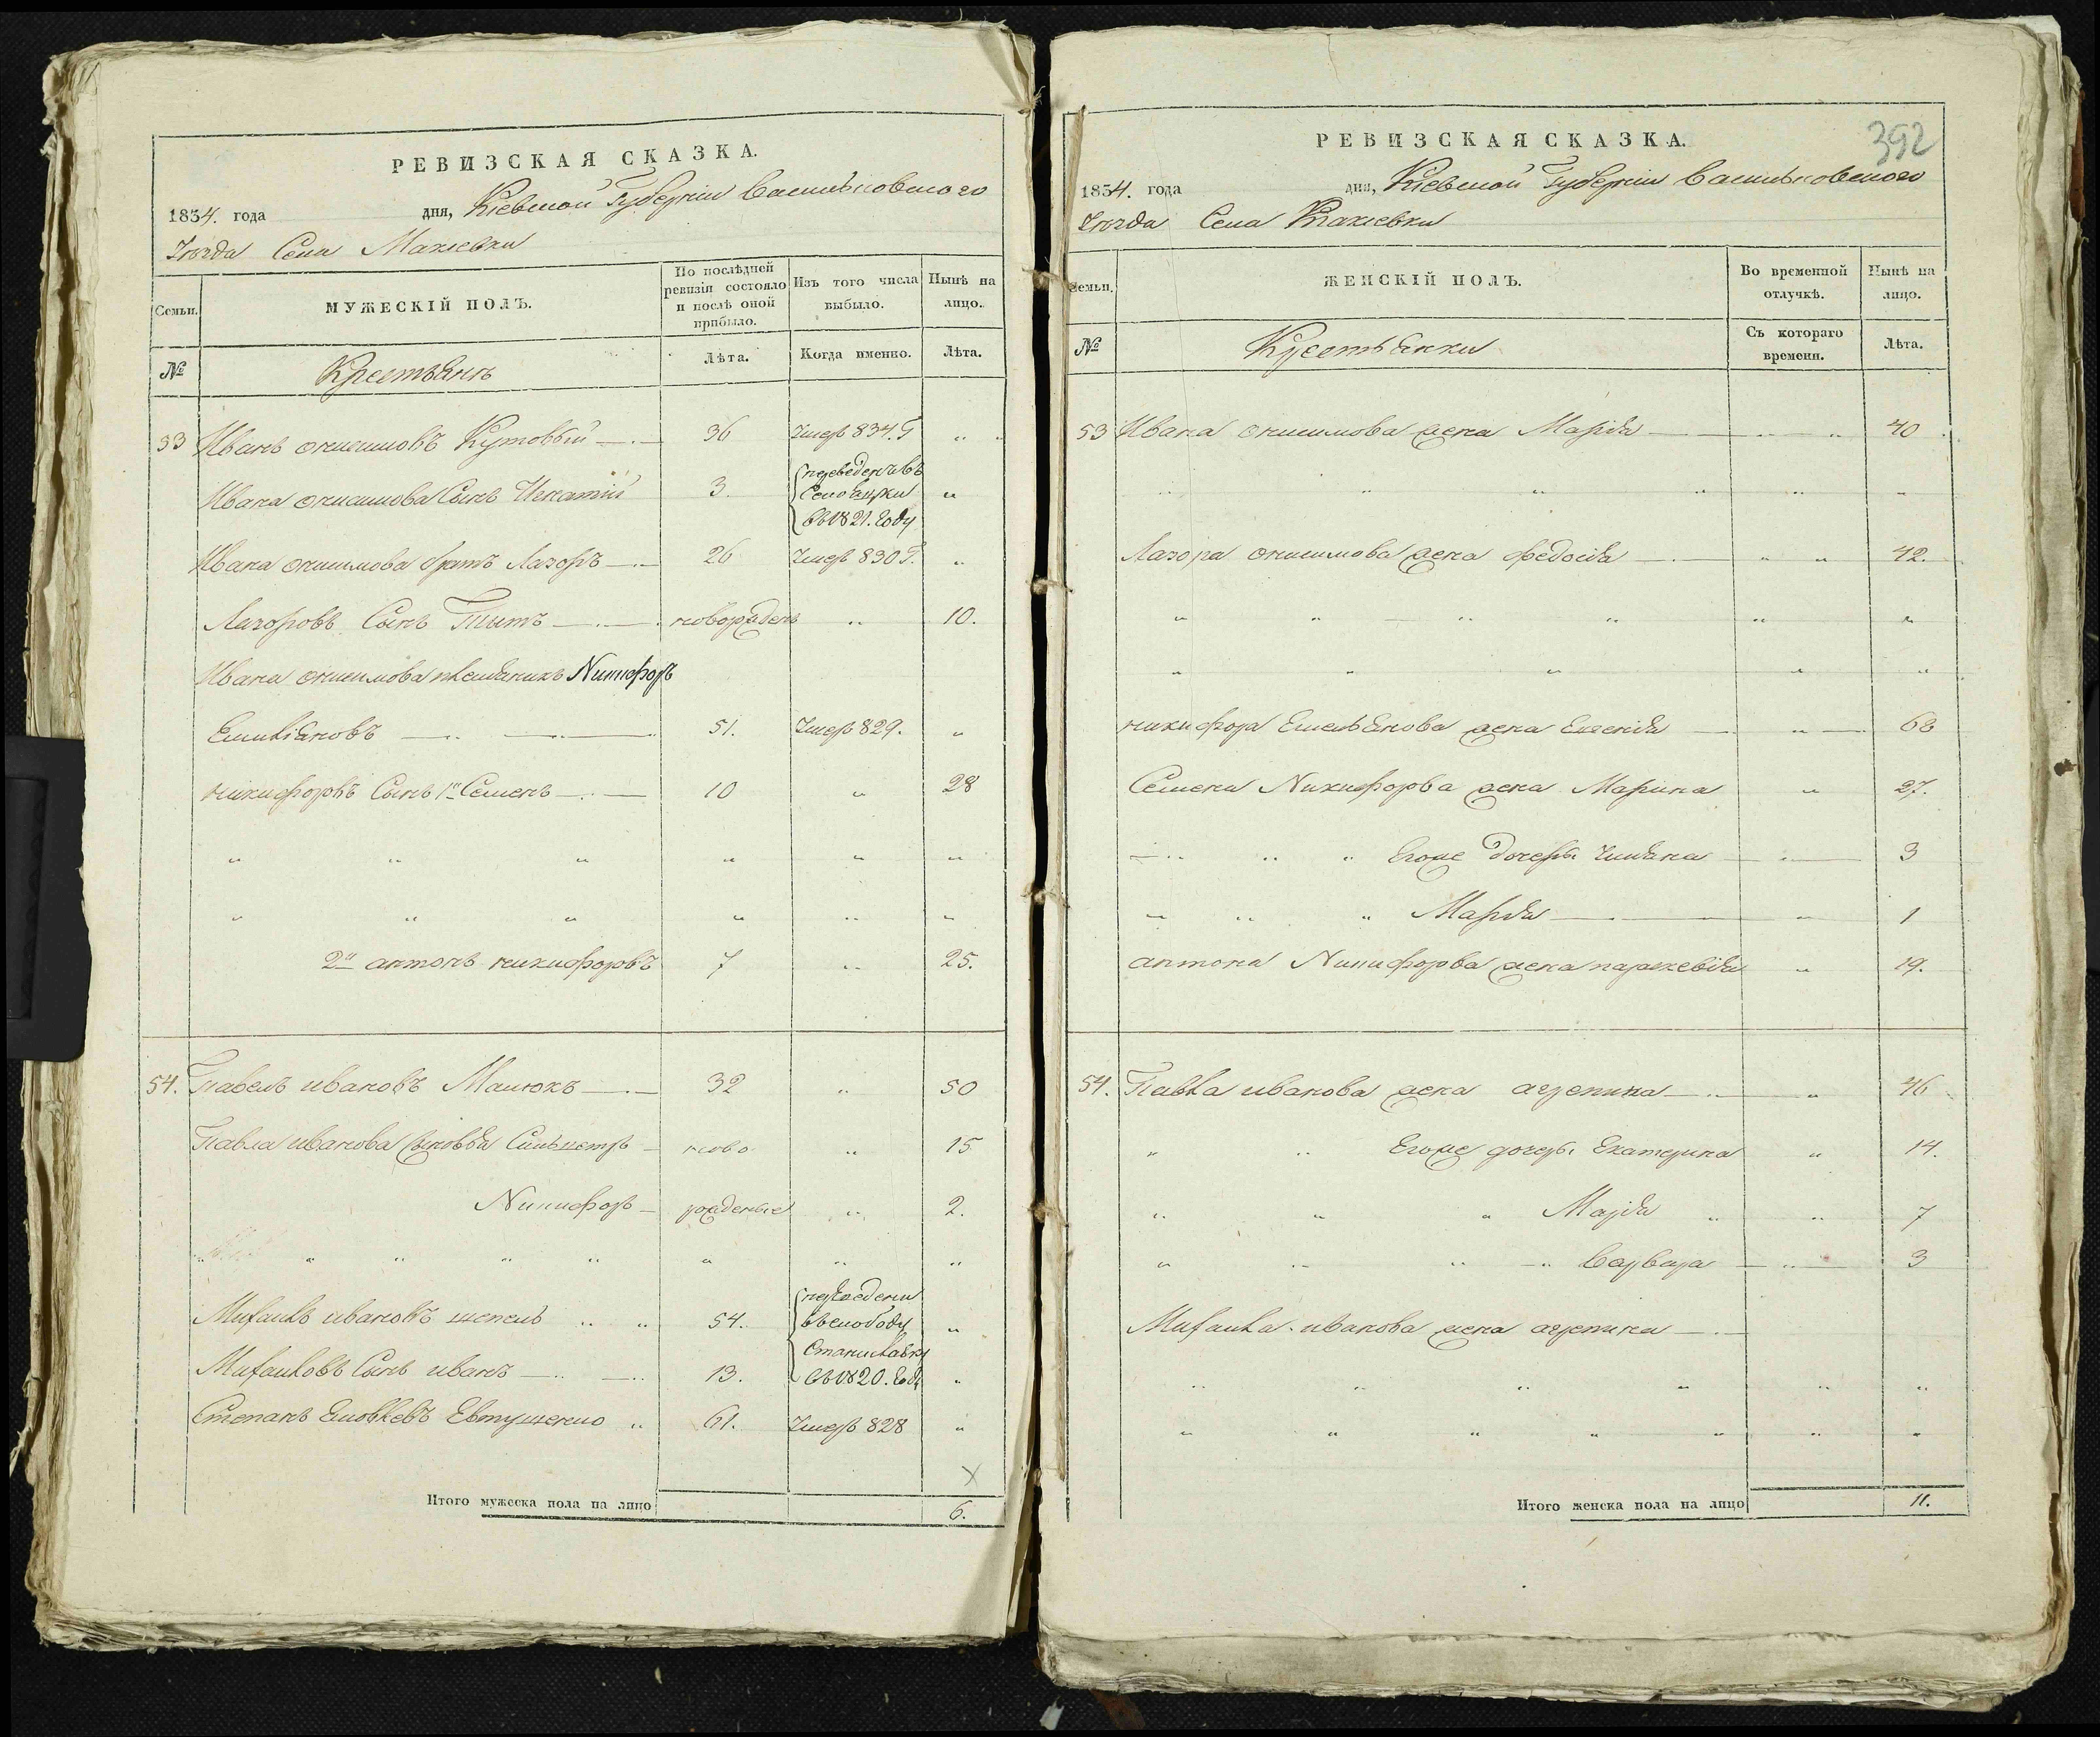 РЕВИЗСКАЯ СКАЗКА.
1834. года дня, Кіевской Губерніи Васильковского
Уѣзда Села Макіевки
Семьи.
МУЖЕСКІЙ ПОЛЪ.
По послѣдней ревизіи состояло и послѣ оной прибыло.
Изъ того числа выбыло.
Нынѣ на лицо.
№
Крестьянъ
Лѣта.
Когда именно.
Лѣта.
53 Иванъ онисимовъ Кутовый 36 Умеръ 834. Г „ „
Ивана онисимова Сынъ Игнатій 3. переведенъ въ Село в 1821. году „
Ивана онисимова братъ Лазоръ 26 Умеръ 830 Г. „
Лазоровъ Сынъ Тытъ новорожденъ „ 10.
Ивана онисимова племяникъ Никифоръ
Емильяновъ 51. Умеръ 829. „
никифоровъ Сынъ 1й Семенъ 10 „ 28
„ „ „ „ „ „
„ „ „ „ „ „
2й антонъ никифоровъ 7 „ 25.
54. Павелъ ивановъ Малюкъ 32 „ 50
Павла иванова Сыновья ново „ 15
Никифоръ рожденые „ 2.
„ „ „ „ „ „ „ „
Михаилъ ивановъ шепель „ „ 54. переведены в слободу „
Михаиловъ Сынъ иванъ 13. Станиславку въ 1820. году „
Степанъ Евтушенко „ 61. Умеръ 828 „
Итого мужеска пола на лицо 6.
392
РЕВИЗСКАЯ СКАЗКА.
1834. года дня, Кіевской Губерніи Васильковского
Уѣзда Села Макіевки
Семьи.
ЖЕНСКІЙ ПОЛЪ.
Во временной отлучкѣ.
Нынѣ на лицо.
№
Крестьянки
Съ котораго времени.
Лѣта.
53 Ивана онисимова жена Марія „ „ 40
„ „ „ „ „ „
Лазора онисимова жена федосія „ „ 42.
„ „ „ „ „ „
„ „ „ „ „
никифора Емельянова жена Евгенія „ 68
Семена Никифорова жена Марина „ 27.
„ „ „ Егоже дочери Уліяна 3
„ „ „ Марія „ 1
антона Никифорова жена параскевія „ 19.
54. Павла иванова жена агрепина „ 46
„ „ Егоже дочери Екатерина „ 14.
„ „ „ Марія „ „ 7
„ „ „ „ Варвара „ 3
Михаила иванова жена агрепина
„ „ „ „ „ „
„ „ „ „ „ „ „
Итого женска пола на лицо 11.